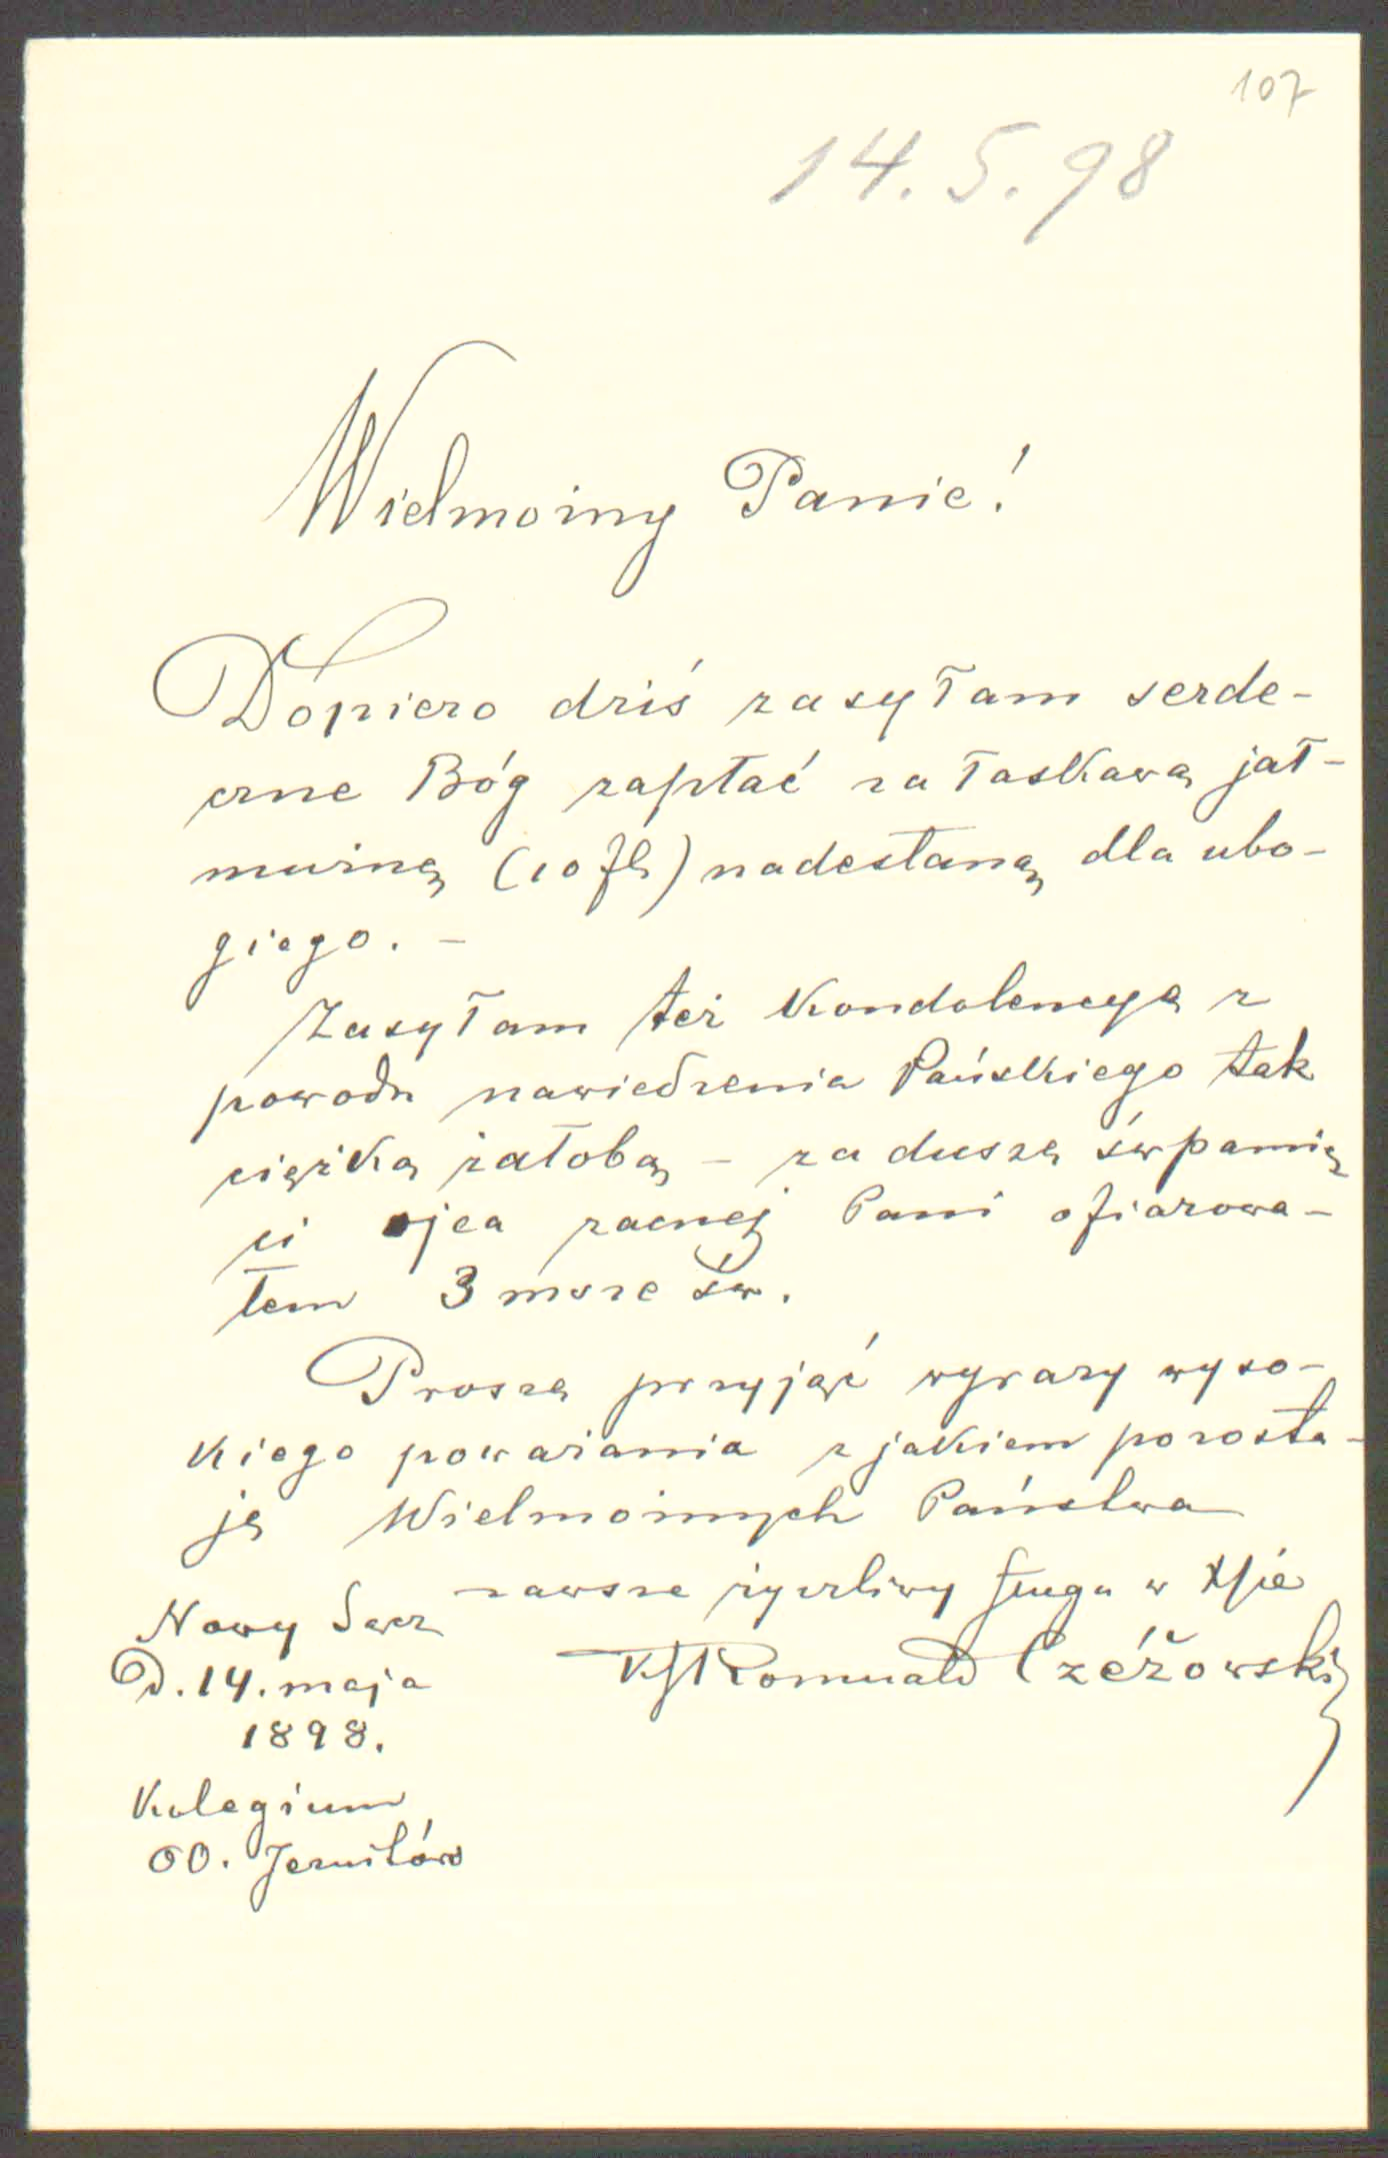 107
14.5.98
Wielmożny Panie!
Dopiero dziś zasyłam serde-
czne Bóg zapłać za łaskawą jał-
mużnę (10 fl) nadesłaną dla ubo-
giego. -
Zasyłam też kondolencyę z
powodu nawiedzenia Pańskiego tak
ciężką żałobą - za duszę śwpamię
ci ojca zacnej Pani ofiarowa-
łem 3 msze św.
Proszę przyjąć wyrazy wyso-
kiego poważania z jakiem pozosta-
ję Wielmożnych Państwa
zawsze życzliwy sługa w Xsie
Romuald Czéžowski
Nowy Sącz
D. 14. maja
1898.
Kolegium
OO. Jezuitów